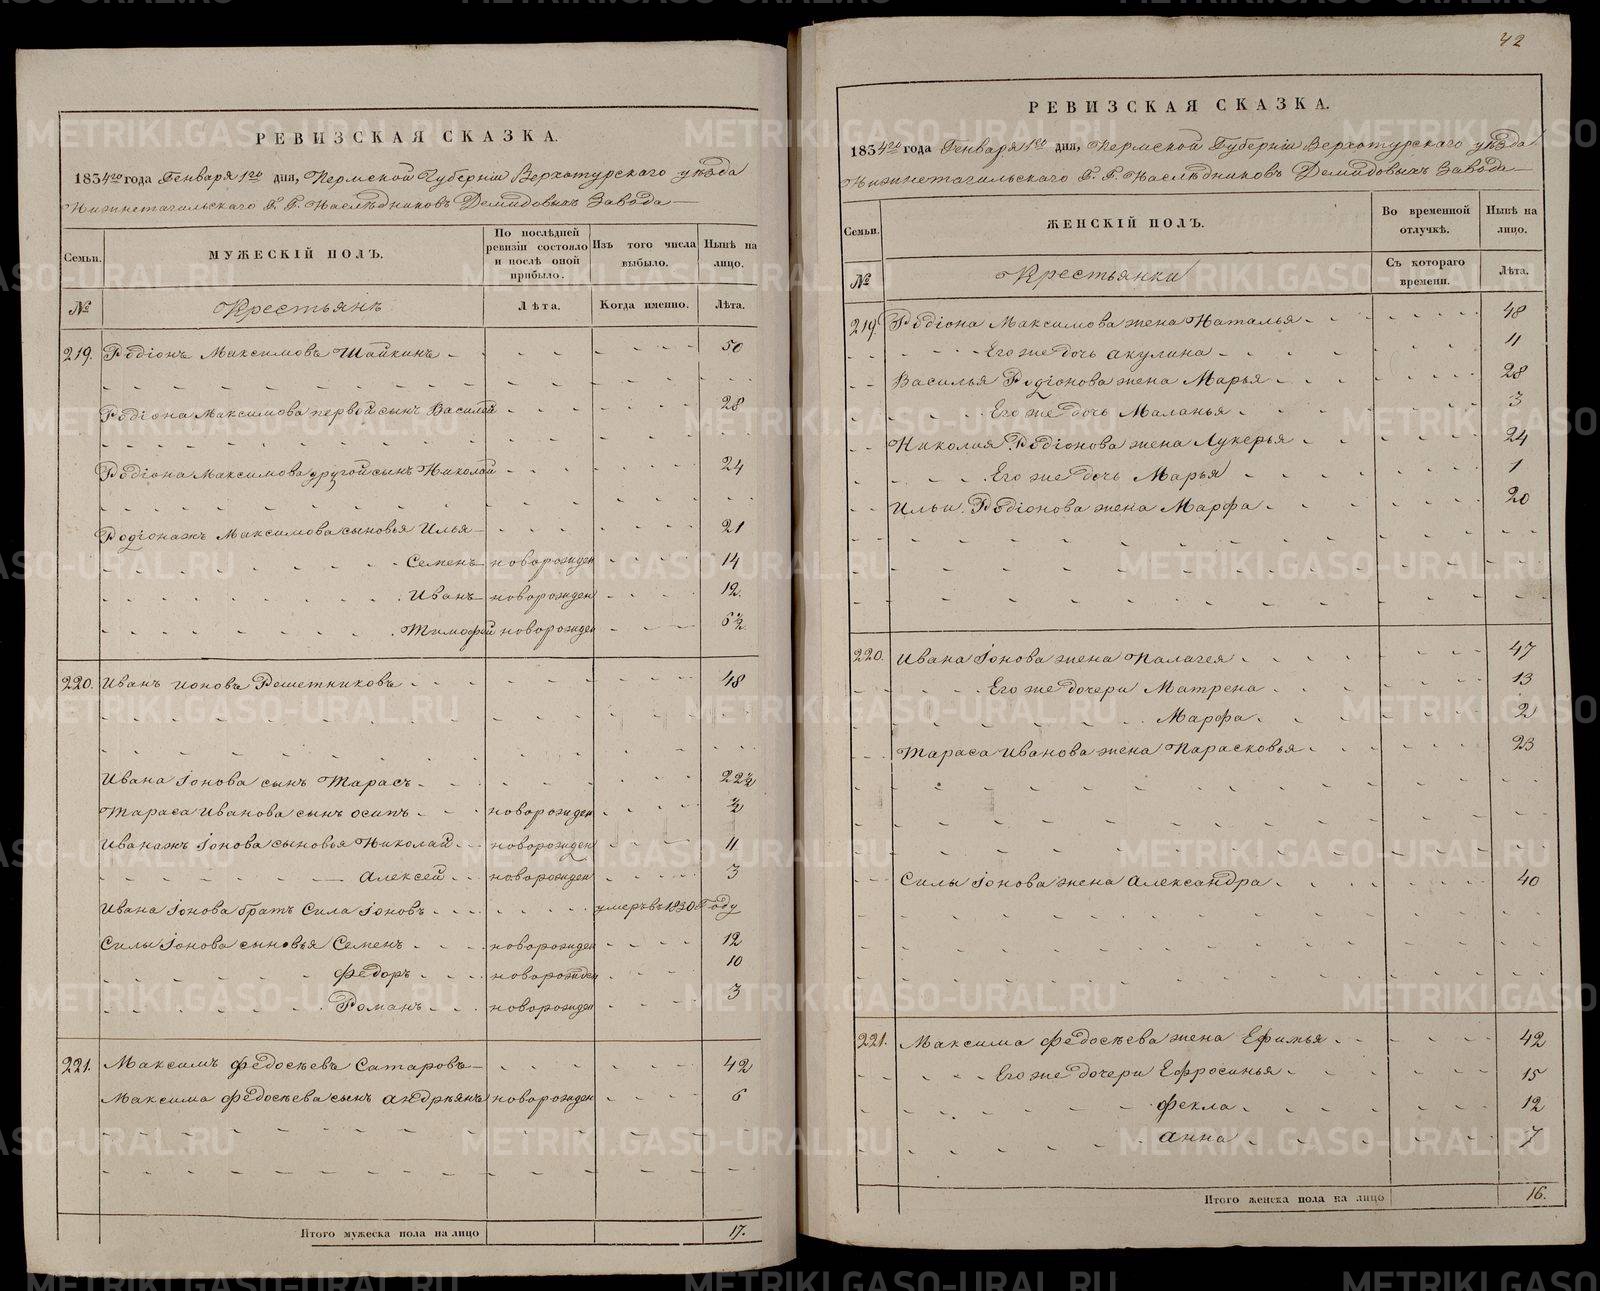 РЕВИЗСКАЯ СКАЗКА.
1834го года Генваря 1го дня, Пермской Губернiи Верхотурскаго уѣзда
Нижнетагильскаго Г. Г. Наслѣдниковъ Демидовыхъ Завода
Семьи.
МУЖЕСКIЙ ПОЛЪ.
По послѣдней ревизiи состояло и послѣ оной прибыло.
Изъ того числа выбыло.
Нынѣ на лицо.
№
Крестьянъ
Лѣта.
Когда именно.
Лѣта.
219. Родiонъ Максимовъ Шайкинъ 50
Родiона Максимова первой сынъ Василей 28
Родiона Максимова другой сынъ Николай 24
Родiонажъ Максимова сыновья Илья 21
Семенъ новорожден 14
Иванъ новорожден 12.
Тимофей новорожден 6 ½
220. Иванъ Ионовъ Решетниковъ 48
Ивана Iонова сынъ Тарасъ 22 ½
Тараса Иванова сынъ осипъ новорожден ½
Иванажъ Iонова сыновья Николай новорожден 11
Алексей новорожден 3
Ивана Iонова братъ Сила Iоновъ умеръ въ 1830 Году
Силы Iонова сыновья Семенъ новорожден 12
Федоръ новорожден 10
Романъ новорожден 3
221. Максимъ Федосѣевъ Сатаровъ 42
Максима Федосѣева сынъ андрѣянъ новорожден 6
Итого мужеска пола на лицо 17.
42
РЕВИЗСКАЯ СКАЗКА.
1834го года Генваря 1го дня, Пермской Губернiи Верхотурскаго уѣзда
Нижнетагильскаго Г. Г. Наслѣдниковъ Демидовыхъ Завода
Семьи.
ЖЕНСКIЙ ПОЛЪ.
Во временной отлучкѣ.
Нынѣ на лицо.
№
Крестьянки
Съ котораго времени.
Лѣта.
219. Родiона Максимова жена Наталья 48
Его же дочь акулина 11
Василья Родiонова жена Марья 28
Его же дочь Маланья 3
Николая Родiонова жена Лукерья 24
Его же дочь Марья 1
Ильи Родiонова жена Марфа 20
220. Ивана Iонова жена Палагея 47
Его же дочери Матрена 13
Марфа 2
Тараса Иванова жена Парасковья 23
Силы Iонова жена Александра 40
221. Максима Федосѣева жена Ефимья 42
Его же дочери Ефросинья 15
Фекла 12
анна 7
Итого женска пола на лицо 16.
METRIKI.GASO-URAL.RU